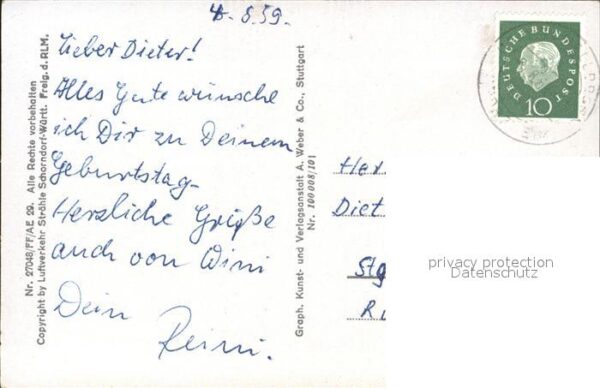 4.8.59.
Lieber Dieter!
Alles Gute wünsche
ich Dir zu Deinem
Geburtstag.
Herzliche Grüße
auch von Wini
Dein
Reini.
Nr. 27048/FF/AE 29. Alle Rechte vorbehalten
Copyright by Luftverkehr Strähle Schorndorf-Württ. Freig. d. RLM.
Graph. Kunst- und Verlagsanstalt A. Weber & Co., Stuttgart
Nr. 100008/101
DEUTSCHE BUNDESPOST
10
Her
Diet
Stg
privacy protection
Datenschutz